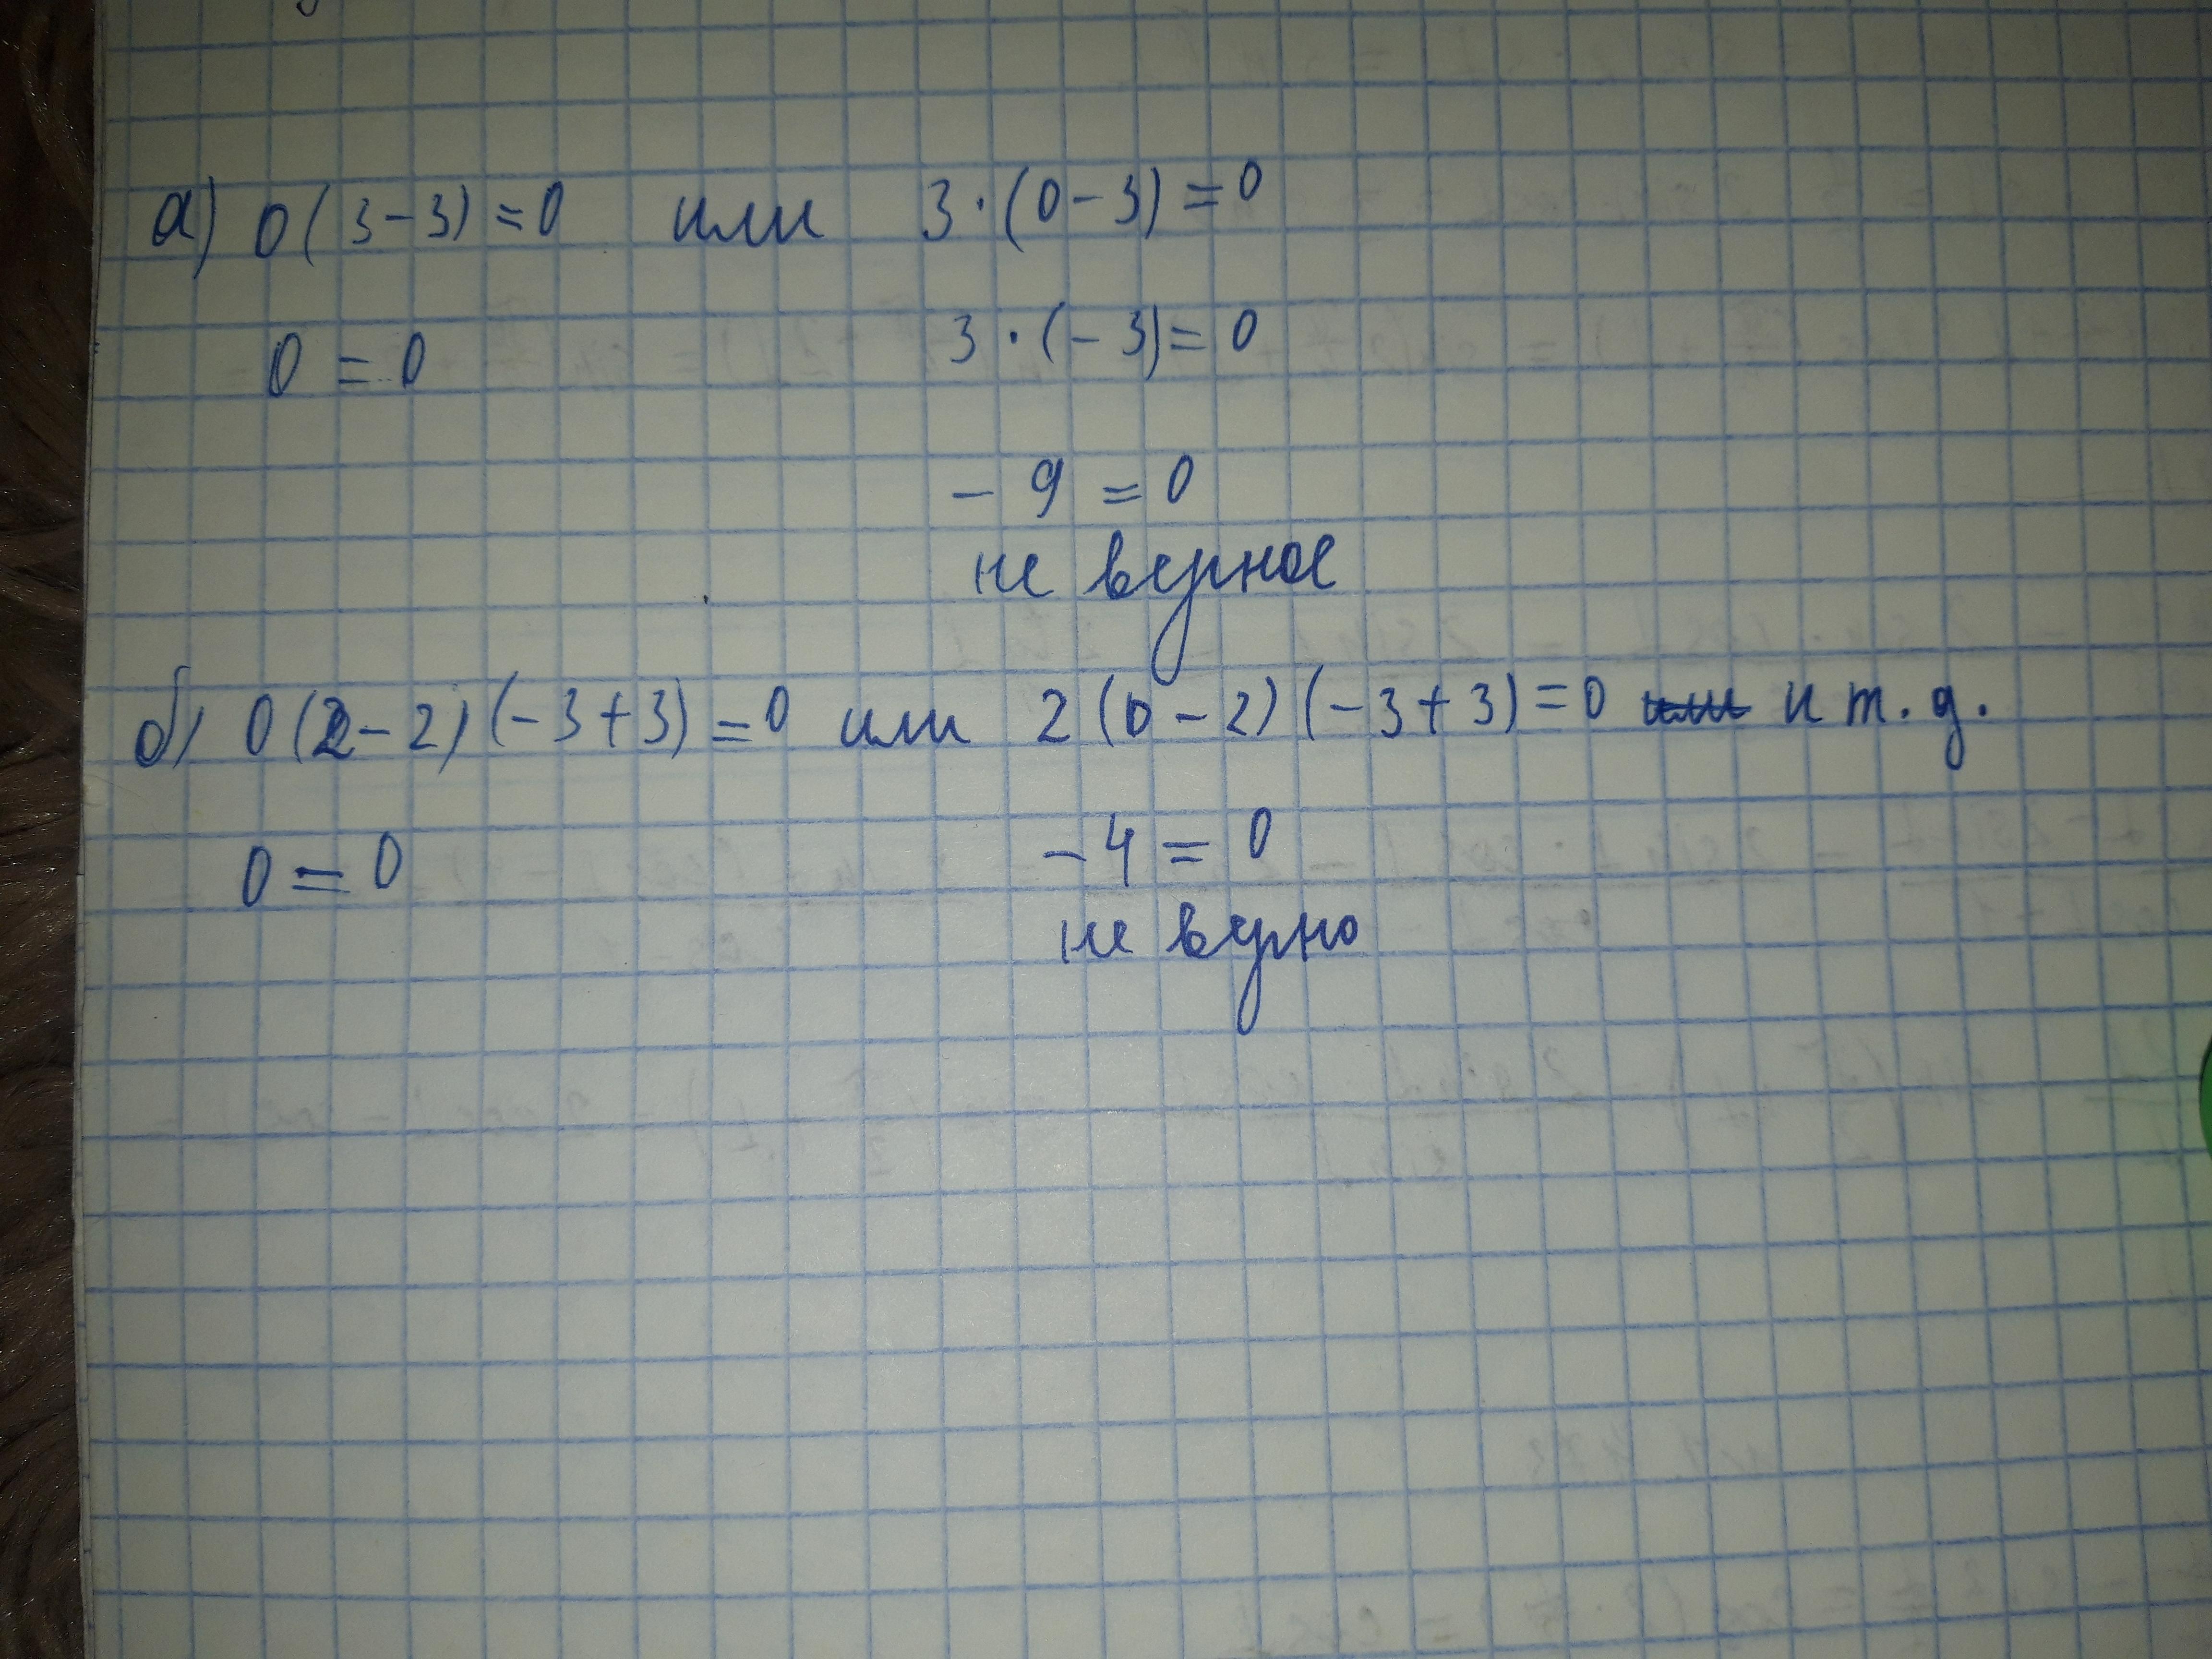 а) 0(3-3)=0 или 3·(0-3)=0
0=0 3·(-3)=0
-9=0
не верное
б) 0(2-2)(-3+3)=0 или 2(0-2)(-3+3)=0 или и т.д.
0=0 -4=0
не верно